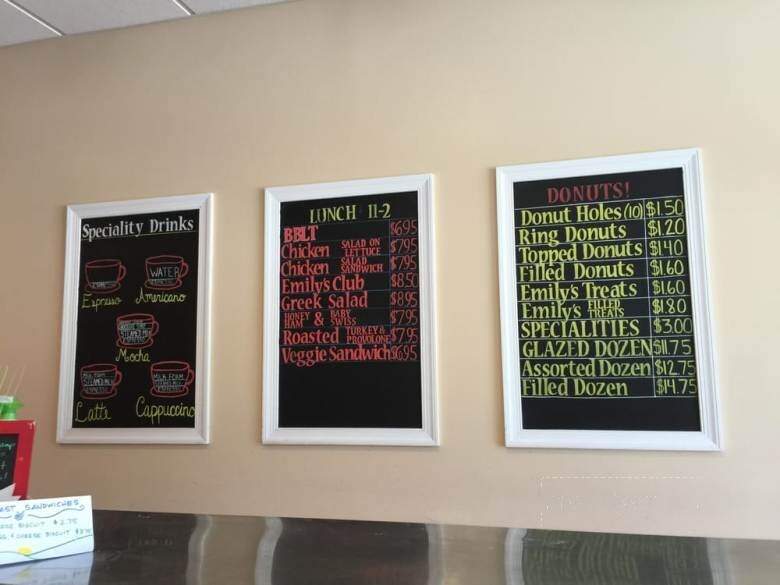 Speciality Drinks
WATER
ESPRESSO
Espresso Americano
STEAMED MILK
ESPRESSO
Mocha
MILK FOAM
STEAMED MILK
ESPRESSO
MILK FOAM
STEAMED MILK
ESPRESSO
Latte Cappuccino
LUNCH 11-2
BBLT $6.95
Chicken SALAD ON LETTUCE $7.95
Chicken SALAD SANDWICH $7.95
Emily's Club $8.50
Greek Salad $8.95
HONEY HAM & BABY SWISS $7.95
Roasted TURKEY & PROVOLONE $7.95
Veggie Sandwich $6.95
DONUTS!
Donut Holes (10) $1.50
Ring Donuts $1.20
Topped Donuts $1.40
Filled Donuts $1.60
Emily's Treats $1.60
Emily's FILLED TREATS $1.80
SPECIALITIES $3.00
GLAZED DOZEN $11.75
Assorted Dozen $12.75
Filled Dozen $14.75
AST SANDWICHES
BISCUIT $2.75
& CHEESE BISCUIT